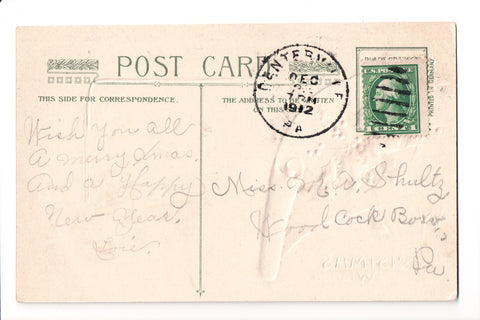 POST CARD
THIS SIDE FOR CORRESPONDENCE.
THE ADDRESS TO BE WRITTEN
ON THIS
CENTERVILLE
DEC
1912
PA
U.S. POS
1 CENT 1
Wish You all
A merry Xmas.
And a Happy
New Year.
Lois.
Miss. M. A. Shultz
Wood Cock Boro,
Pa